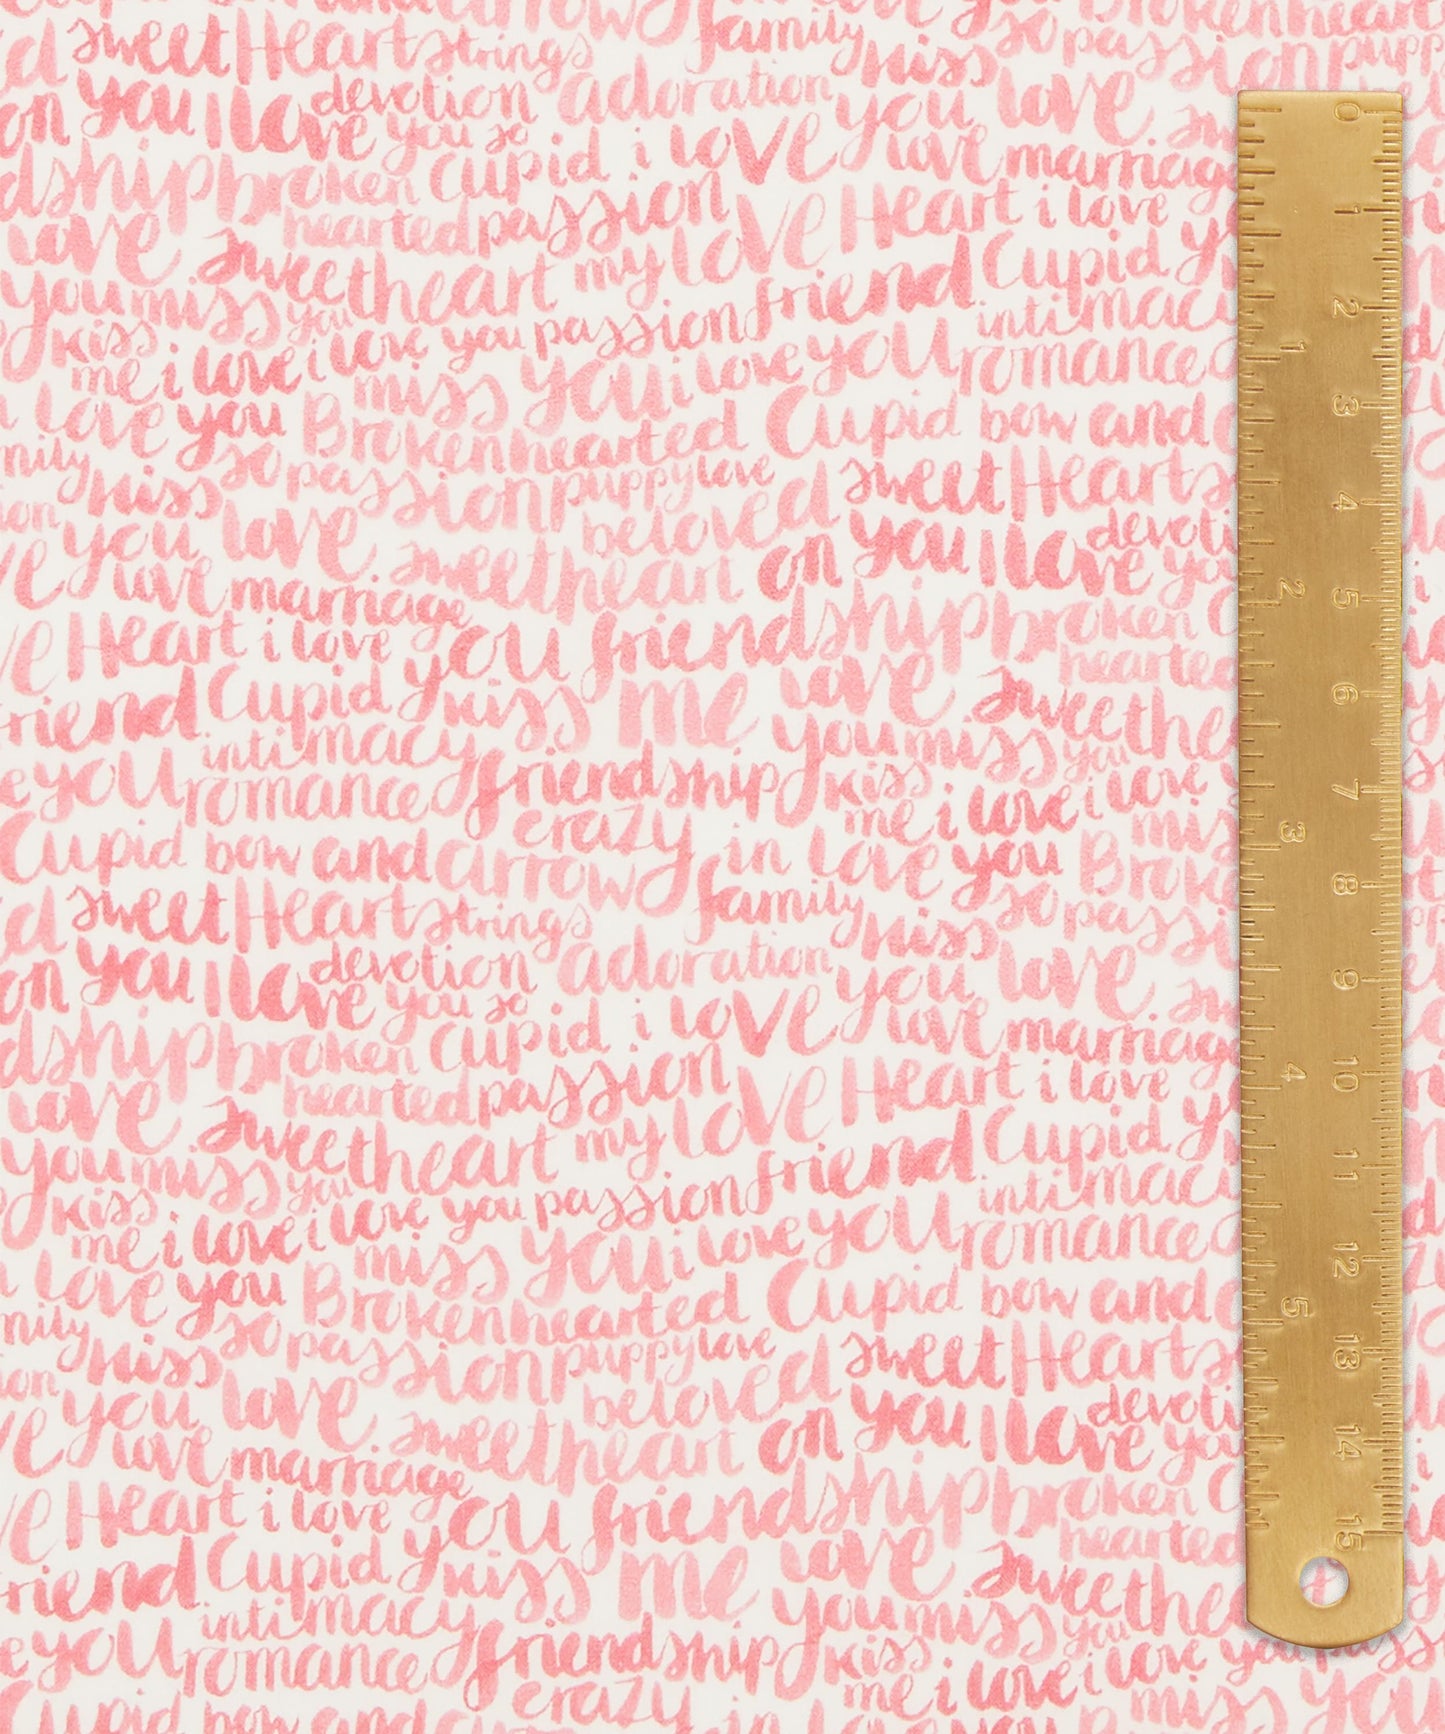 and arrow you so Brokenhearted
sweet Heart strings family kiss so passion pupp
on you I love devotion you so adoration you love
dship broken hearted Cupid i love love marriag
love passion my love Heart i love
sweetheart friend Cupid y
you miss you intimac
kiss me i love i love you passion i love you romance
miss you
love you Brokenhearted Cupid bow and
mily kiss so passion puppy love sweet Heart s
you love beloved on you I love devoti
love marriage sweetheart you
Heart i love you friendship broken hearted C
friend Cupid y kiss me love sweethe
intimacy you miss you
e you romance friendship kiss me i love i love
crazy in love you miss
Cupid bow and arrow Broke
sweet Heart strings family kiss so passi
on you I love devotion you so adoration you love
dship broken hearted Cupid i love love marriag
love passion my love Heart i love
sweetheart friend Cupid y
you miss you intimac
kiss me i love i love you passion i love you romance
miss you
love you Brokenhearted Cupid bow and
mily kiss so passion puppy love sweet Heart s
you love beloved on you I love devoti
love marriage sweetheart you
Heart i love you friendship broken hearted C
friend Cupid y kiss me love sweethe
intimacy you miss you
e you romance friendship kiss me i love i love you
crazy miss you
Cupid bow and
0 1 2 3 4 5 6 7 8 9 10 11 12 13 14 15
1 2 3 4 5